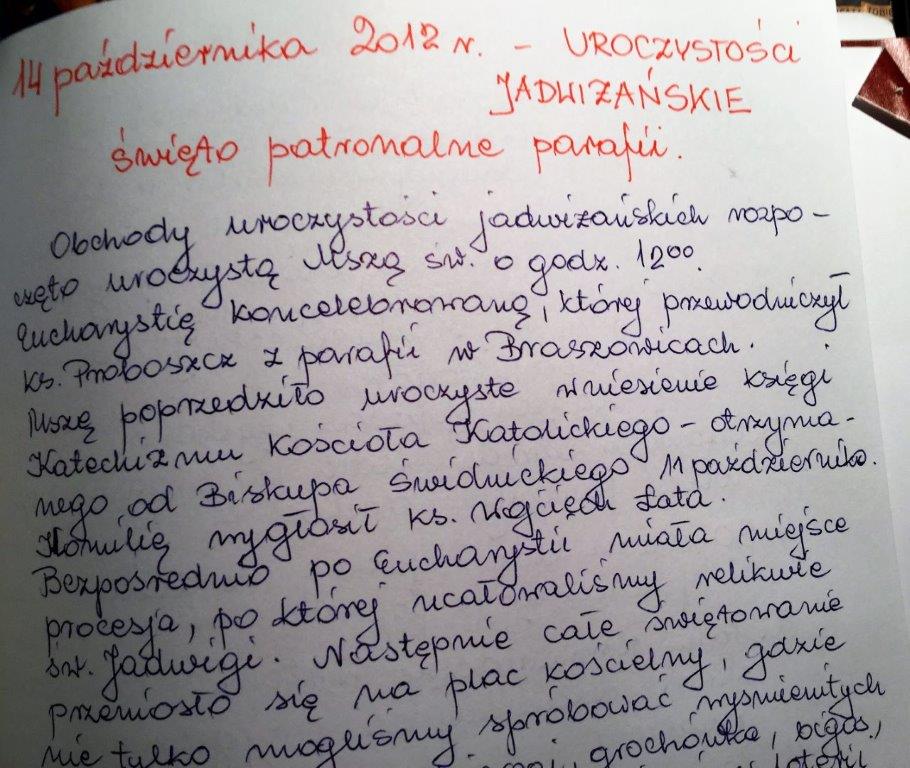 14 października 2012 r. - UROCZYSTOŚCI
JADWIŻAŃSKIE
święto patronalne parafii.
Obchody uroczystości jadwiżańskich rozpo-
częto uroczystą Mszą św. o godz. 12⁰⁰.
Eucharystię koncelebrowaną, której przewodniczył
ks. Proboszcz z parafii w Braszowicach.
Mszę poprzedziło uroczyste wniesienie księgi
Katechizmu Kościoła Katolickiego - otrzyma-
nego od Biskupa Świdnickiego 11 października.
Homilię wygłosił ks. Wojciech Łata.
Bezpośrednio po Eucharystii miała miejsce
procesja, po której ucałowaliśmy relikwie
św. Jadwigi. Następnie całe świętowanie
przeniosło się na plac kościelny, gdzie
nie tylko mogliśmy spróbować wyśmienitych
grochówka, bigos,
loterii